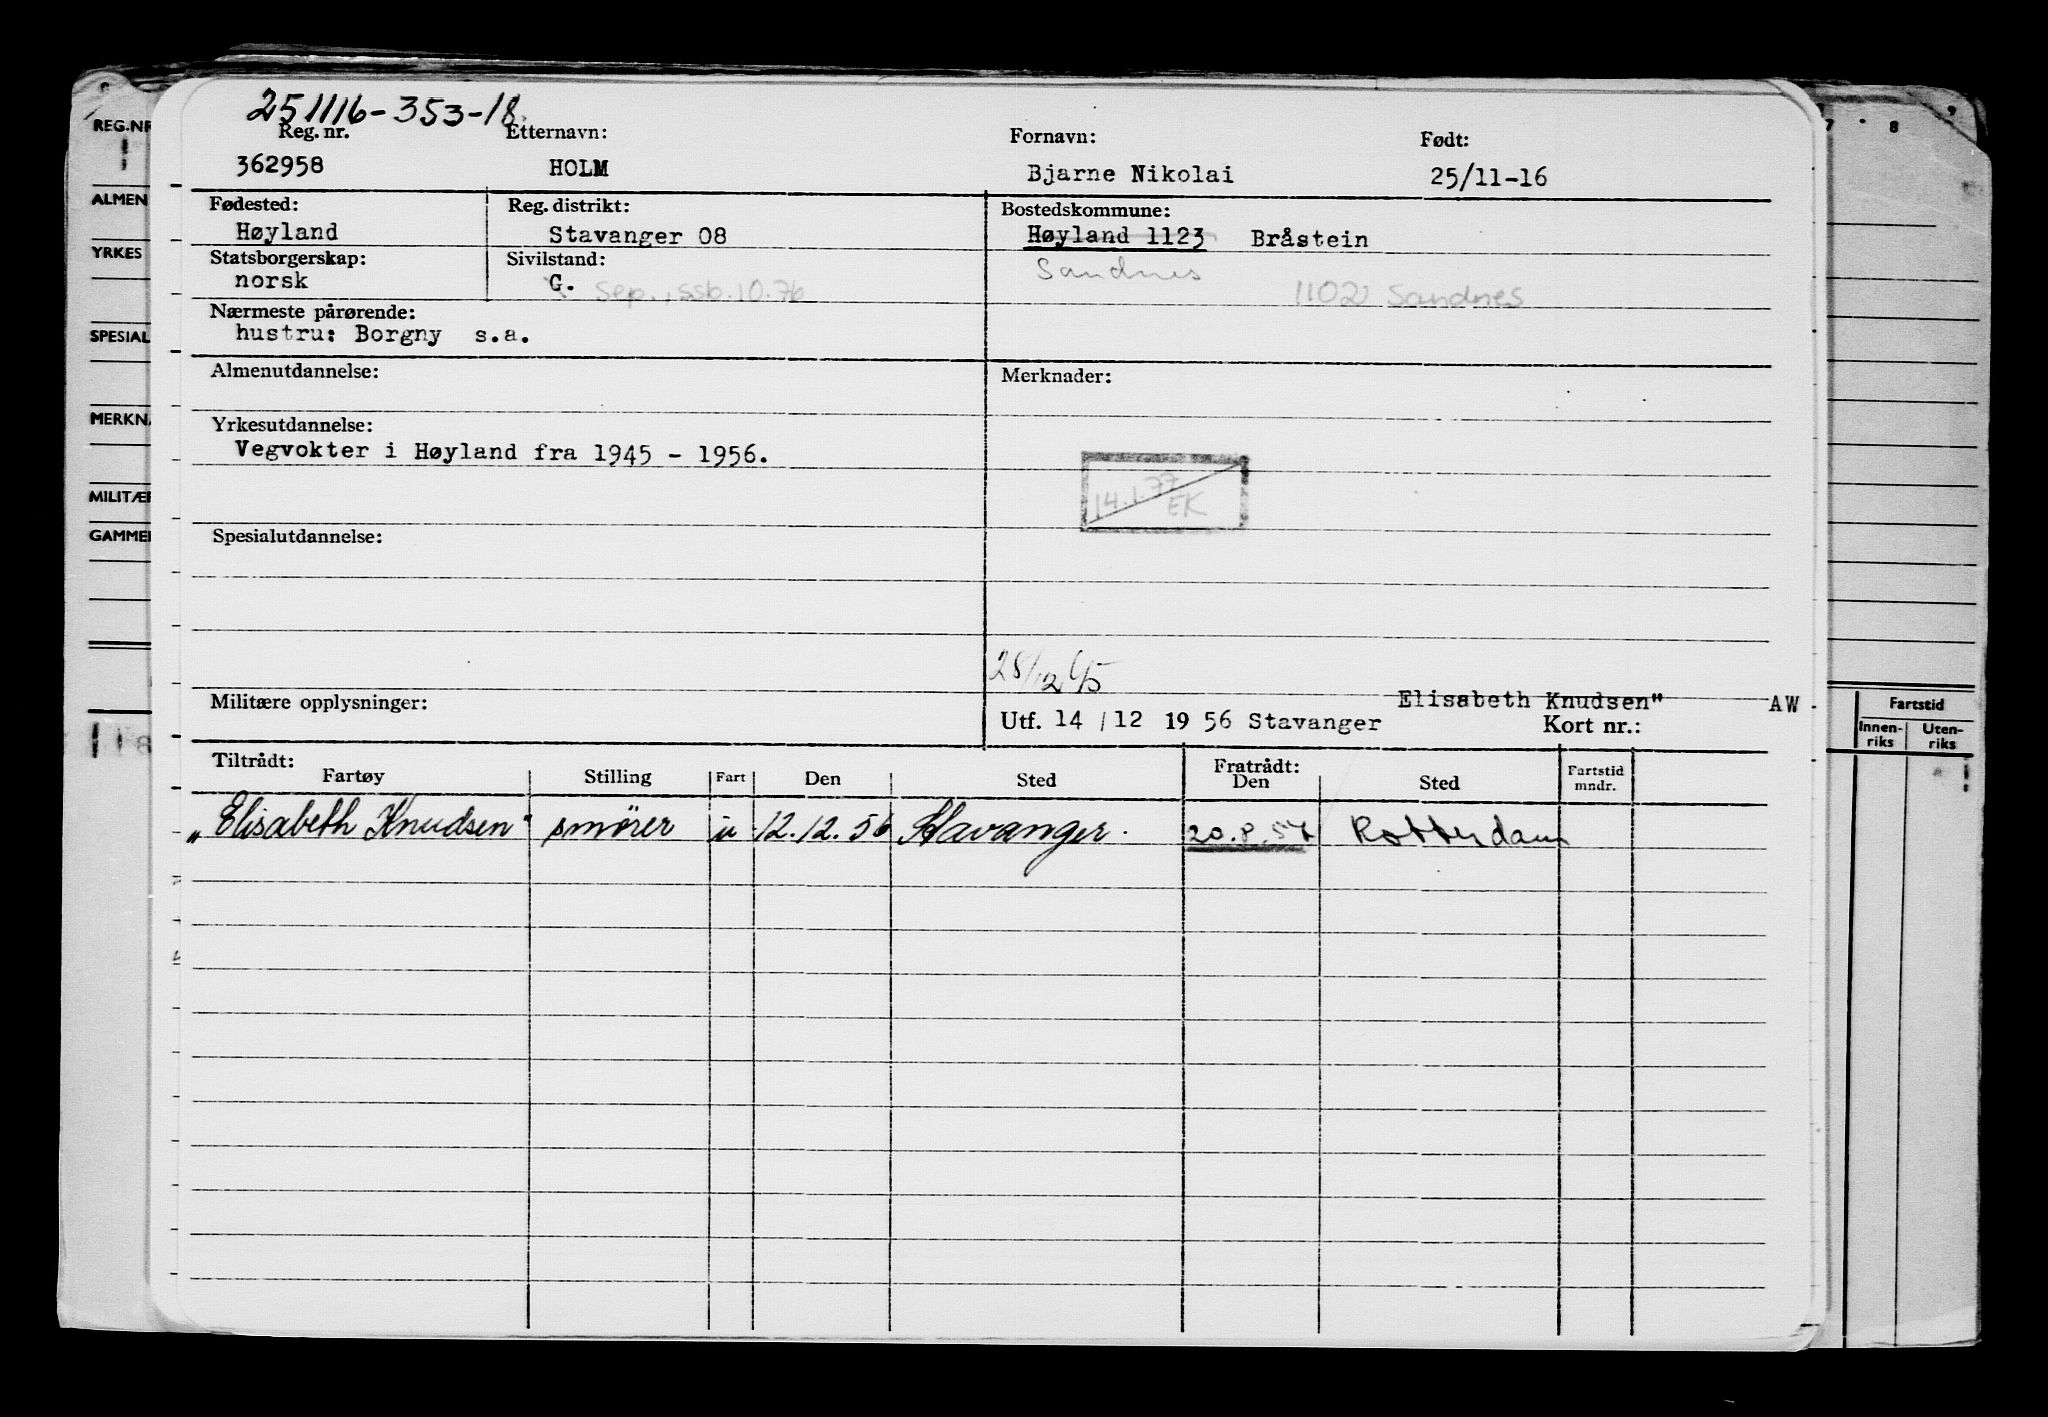 251116-353-18
REG.NR
Reg. nr.
Etternavn:
Fornavn:
Født:
362958
HOLM
Bjarne Nikolai
25/11-16
7 8 9
ALMEN
Fødested:
Reg. distrikt:
Bostedskommune:
Høyland
Stavanger 08
Høyland 1123
Bråstein
YRKES
Statsborgerskap:
Sivilstand:
Sandnes
norsk
G.
Sep., ssb.10.76
1102 Sandnes
Nærmeste pårørende:
SPESIAL
hustru: Borgny s.a.
Almenutdannelse:
Merknader:
MERKNA
Yrkesutdannelse:
Vegvokter i Høyland fra 1945 - 1956.
MILITÆR
14.1.77
EK
GAMMEL
Spesialutdannelse:
28/12
Militære opplysninger:
Elisabeth Knudsen"
AW
Utf. 14/12 1956 Stavanger
Kort nr.:
Fartstid
Innen-
riks
Uten-
riks
Tiltrådt:
Fratrådt:
Fartøy
Stilling
Fart
Den
Sted
Den
Sted
Fartstid
mndr.
„Elisabeth Knudsen" smører u 12.12.56 Stavanger. 20.8.57 Rotterdam